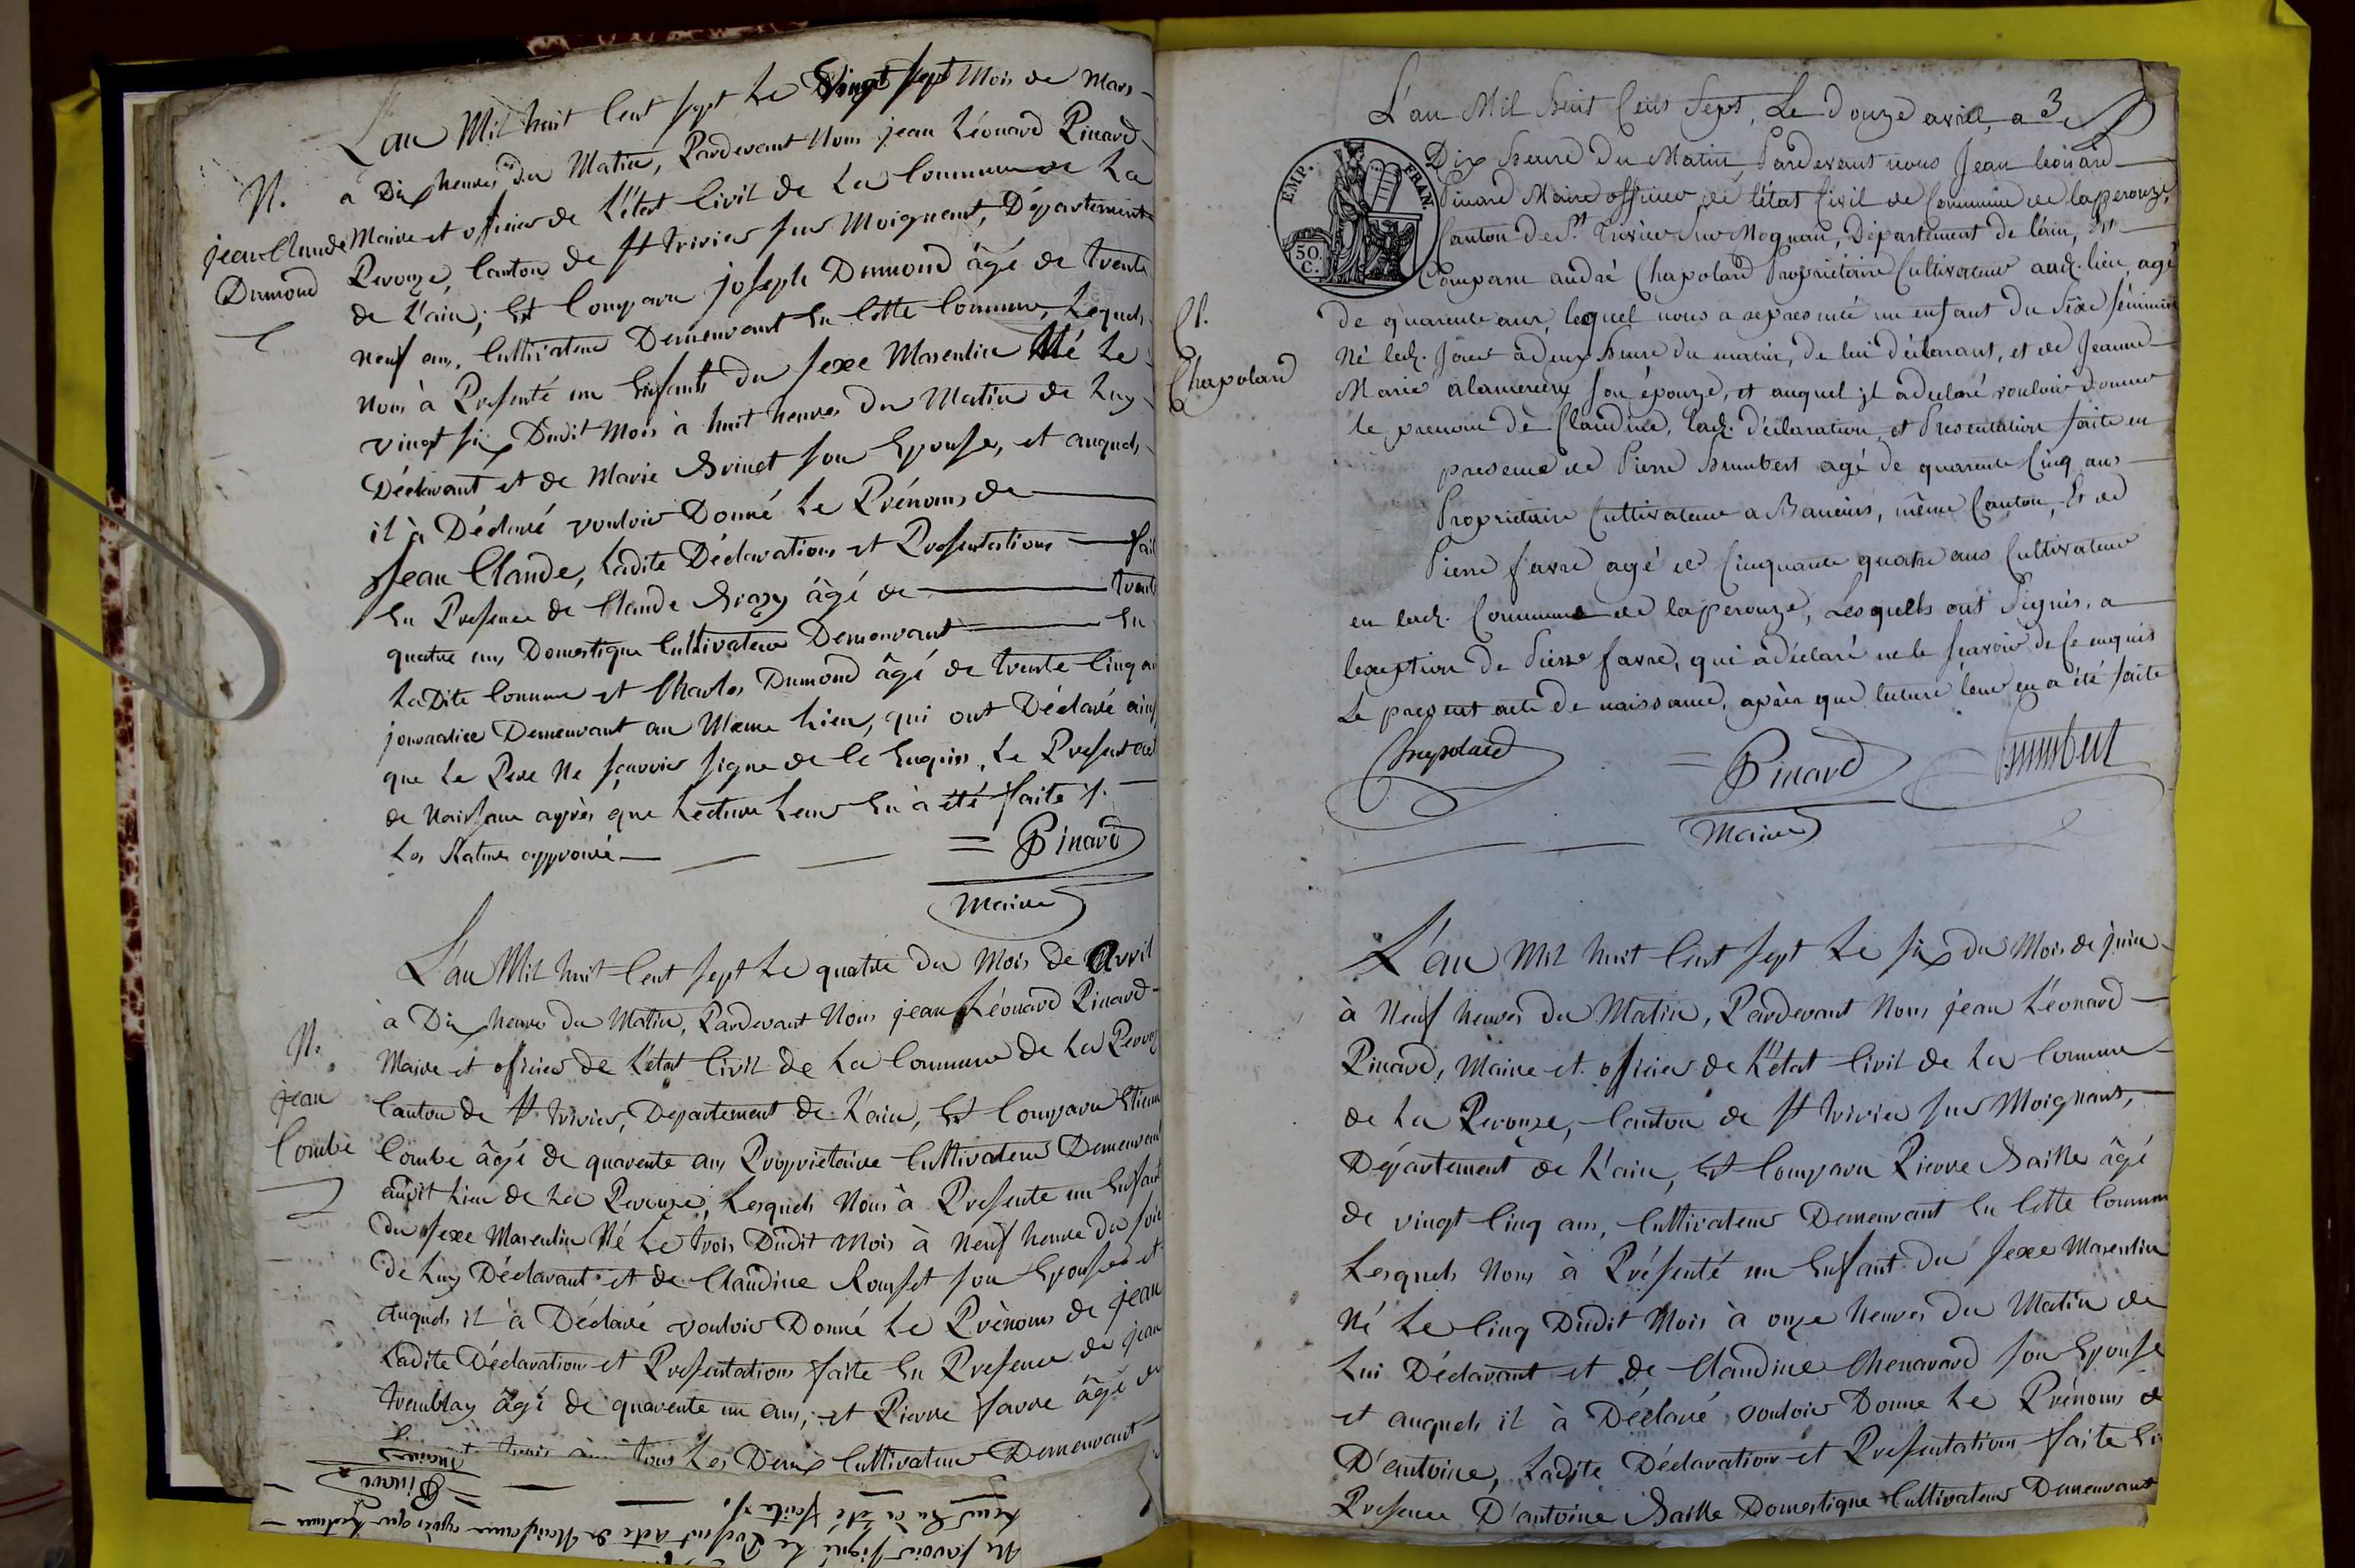 L'an Mil huit Cent sept Le Vingt sept Mois de Mars
à Dix heures du Matin, Pardevant Nous jean Léonard Pinard
Maire et officier de L'état Civil de La Commune de La
Perouze, Canton de St Trivier sur Moignant, Département
de L'ain; Est Comparu joseph Dumond âgé de trente
neuf ans, Cultivateur Demeurant En Cette Commune, Lequels
Nous à Présenté un Enfants du sexe Masculin Né Le
vingt six Dudit Mois à huit heures du Matin de Luy
Déclarant et de Marie Brinet son Epouse, et auquels
il à Déclaré vouloir Donné Le Prénoms de
Jean Claude, Ladite Déclarations et Presentations fait
En Presence de Claude Brazy âgé de trente
quatre ans Domestique Cultivateur Demeurant En
LaDite Commune et Charles Dumond âgé de trente Cinq an
journalier Demeurant au Meme Lieu, qui ont Déclaré ainsy
que Le Pere Ne sçavoir signe de Ce Enquis, Le Present act
de Naissance après que Lecture Leur En à été faite ./.
Les Rature approuvé
= Pinard
Maire
N.
jean Claude
Dumond
L'an Mil huit Cent sept Le quatre du Mois de Avril
à Dix heures du Matin, Pardevant Nous jean Léonard Pinard
Maire et officier de L'état Civil de La Commune de La Perouz
Canton de St Trivier, Departement de L'ain, Est Comparu Etienne
Combe âgé de quarente ans Propriétaire Cultivateur Demeurant
audit Lieu de La Perouze, Lesquels Nous à Presente un Enfant
du sexe Masculin Né Le trois Dudit Mois à Neuf heure du soir
de Luy Déclarant et de Claudine Rousset son Epouse et
auquels il à Déclaré vouloir Donné Le Prènoms de jean
Ladite Déclaration et Presentations faite En Presence de jean
tremblay âgé de quarente un ans, et Pierre favre âgé de
trois ans tous Les Deux Cultivateur Demeurant
N.
jean
Combe
Ne savoir signé Le Present acte de Naissance après que Lecture
Leur En à été faite ./.
= Pinard
Maire
L'an Mil huit Cent Sept, Le Douze avril, a 3
Dix heure Du Matin, Pardevant nous Jean Léonard
Pinard Maire officier de l'état Civil de Commune de laperouze,
Canton de St. Trivier Sur Mognan, Département de l'ain, Est
Comparu andré Chapoland Propriétaire Cultivateur aud. lieu, agé
de quarente ans, lequel nous a représenté un enfant du Sexe féminin
Né led. Jour à deux heure du matin, de lui déclarant, et de Jeanne
Marie alamercery son épouze, et auquel il a déclaré vouloir donner
le prenom de Claudine, lad. déclaration et Présentation faite en
presence de Pierre humbert agé de quarente Cinq ans
Propriétaire Cultivateur a Baneins, même Canton, Et de
Pierre favre agé de Cinquante quatre ans Cultivateur
en lad. Commune de laperouze, Lesquels ont Signés, a
lexeption de Pierre favre, qui à déclaré ne le scavoir de Ce enquis
Le present acte de naissance, après que lecture leur en a été faite
EMP. FRAN.
50. C.
Cl.
Chapoland
Chapoland = Pinard humbert
Maire
L'an Mil huit Cent sept Le six du Mois de juin
à Neuf heures du Matin, Pardevant Nous jean Léonard
Pinard, Maire et officier de L'état Civil de La Commune
de La Perouze, Canton de St Trivier sur Moignant,
Département de L'ain, Est Comparu Pierre Baille âgé
de vingt Cinq ans, Cultivateur Demeurant En Cette Commun
Lesquels Nous à Présenté un Enfant du sexe Masculin
Né Le Cinq Dudit Mois à onze heures du Matin de
Lui Déclarant et de Claudine Chenavard son Epouse
et auquels il à Déclaré vouloir Donne Le Prénoms de
D'antoine, Ladite Déclaration et Presentation faite En
Presence D'antoine Baille Domestique Cultivateur Demeurant